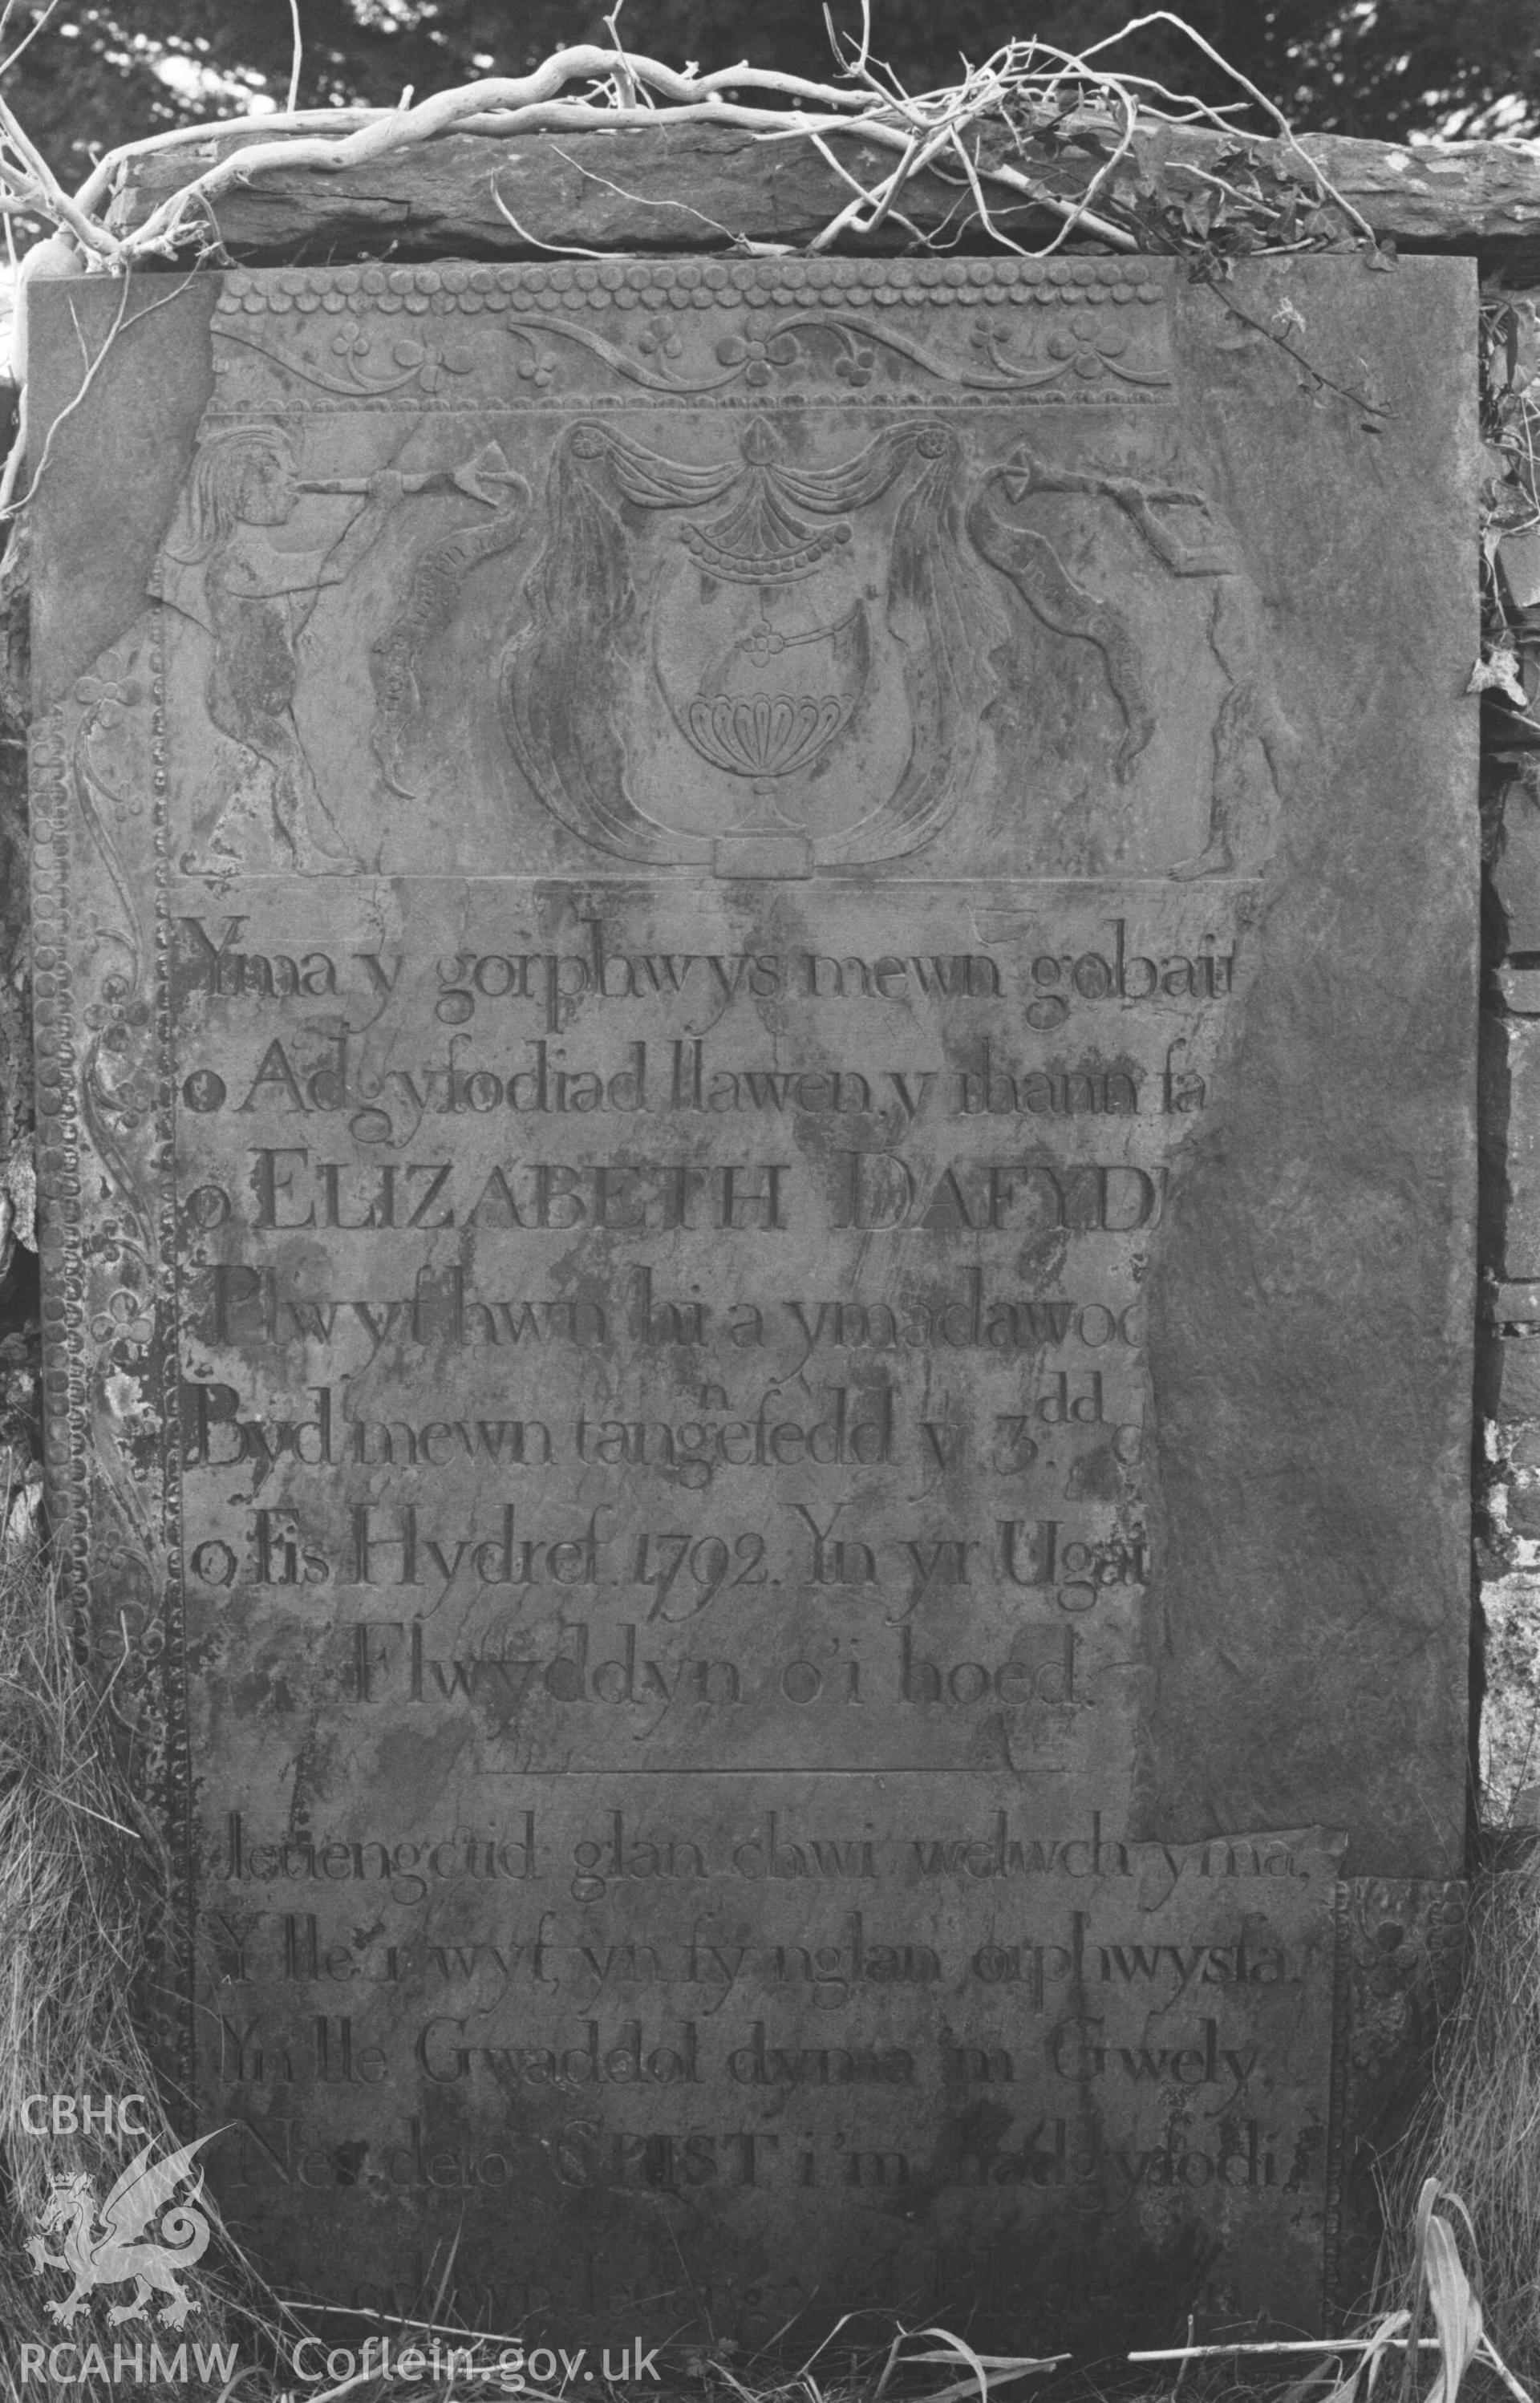 Yma y gorphwys mewn gobait
o Adgyfodiad llawen, y rhann fa
o ELIZABETH DAFYD
Plwyf hwn hi a ymadawod
Byd mewn tangnefedd y 3.dd o
o Fis Hydref. 1792. Yn yr Ugai
Flwyddyn o'i hoed.
Ieuengctid glan chwi welwch yma,
Y lle'r wyf, yn fy nglan orphwysfa.
Yn lle Gwaddol dyma 'm Gwely
Nes delo CRIST i'm hadgyfodi,
CBHC
RCAHMW Coflein.gov.uk